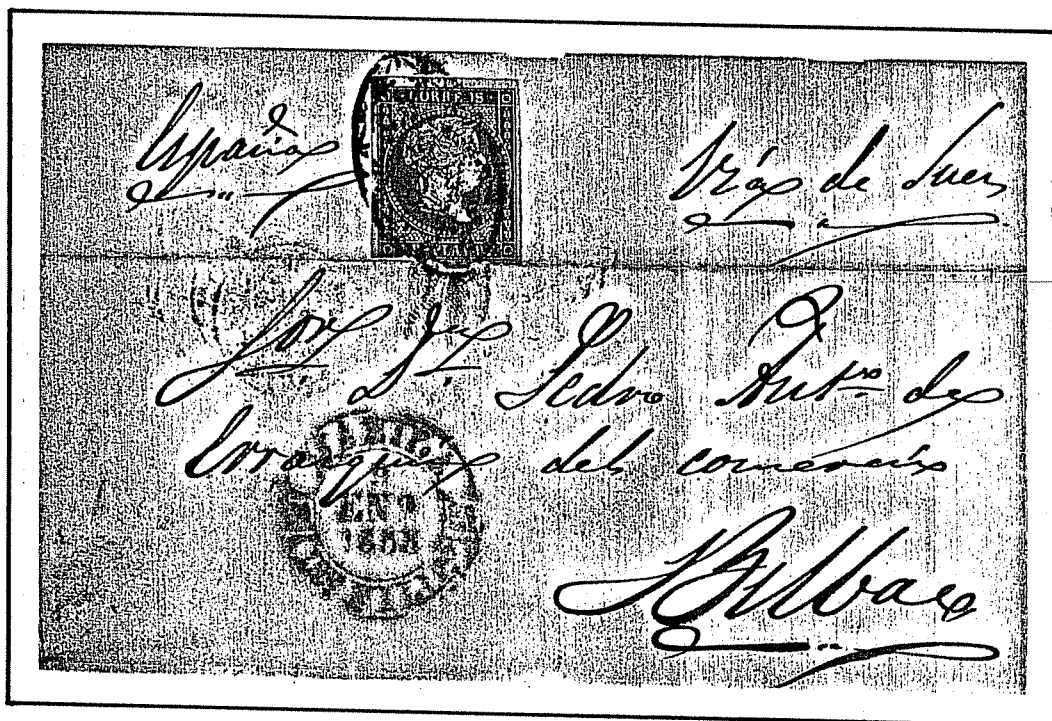 CORREOS
España
Vía de Suez
Sor Dn Pedro Anto de
Errazquin del comercio
ENº
Bilbao